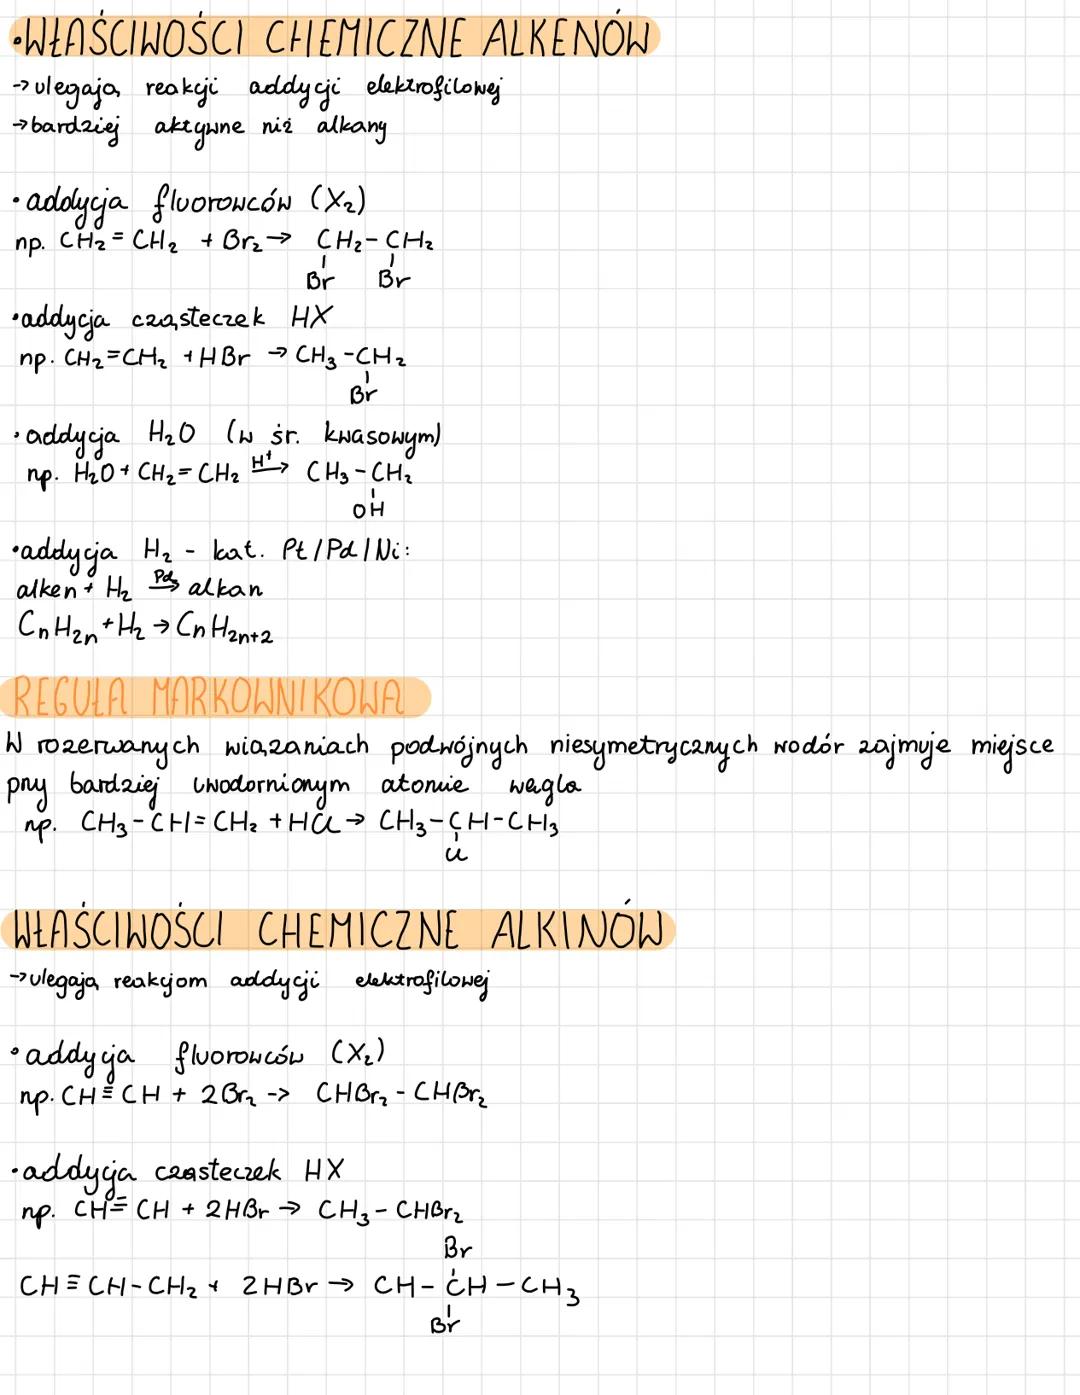 •WŁAŚCIWOŚCI CHEMICZNE ALKENÓW
→ulegają reakcji addycji elektrofilowej
→bardziej aktywne niż alkany
•addycja fluorowców (X₂)
np. CH₂=CH₂ + Br₂ → CH₂-CH₂
Br Br
•addycja cząsteczek HX
np. CH₂=CH₂ + HBr → CH₃-CH₂
Br
•addycja H₂O (w śr. kwasowym)
np. H₂O + CH₂=CH₂ H⁺→ CH₃-CH₂
OH
•addycja H₂ - kat. Pt/Pd/Ni:
alken + H₂ Pd→ alkan
CnH2n + H₂ → CnH2n+2
REGUŁA MARKOWNIKOWA
W rozerwanych wiązaniach podwójnych niesymetrycznych wodór zajmuje miejsce
przy bardziej uwodornionym atomie węgla
np. CH₃-CH=CH₂ + HCl → CH₃-CH-CH₃
Cl
WŁAŚCIWOŚCI CHEMICZNE ALKINÓW
→ulegają reakcjom addycji elektrofilowej
•addycja fluorowców (X₂)
np. CH≡CH + 2Br₂ -> CHBr₂-CHBr₂
•addycja cząsteczek HX
np. CH≡CH + 2HBr → CH₃-CHBr₂
Br
CH≡CH-CH₂ + 2HBr → CH-CH-CH₃
Br